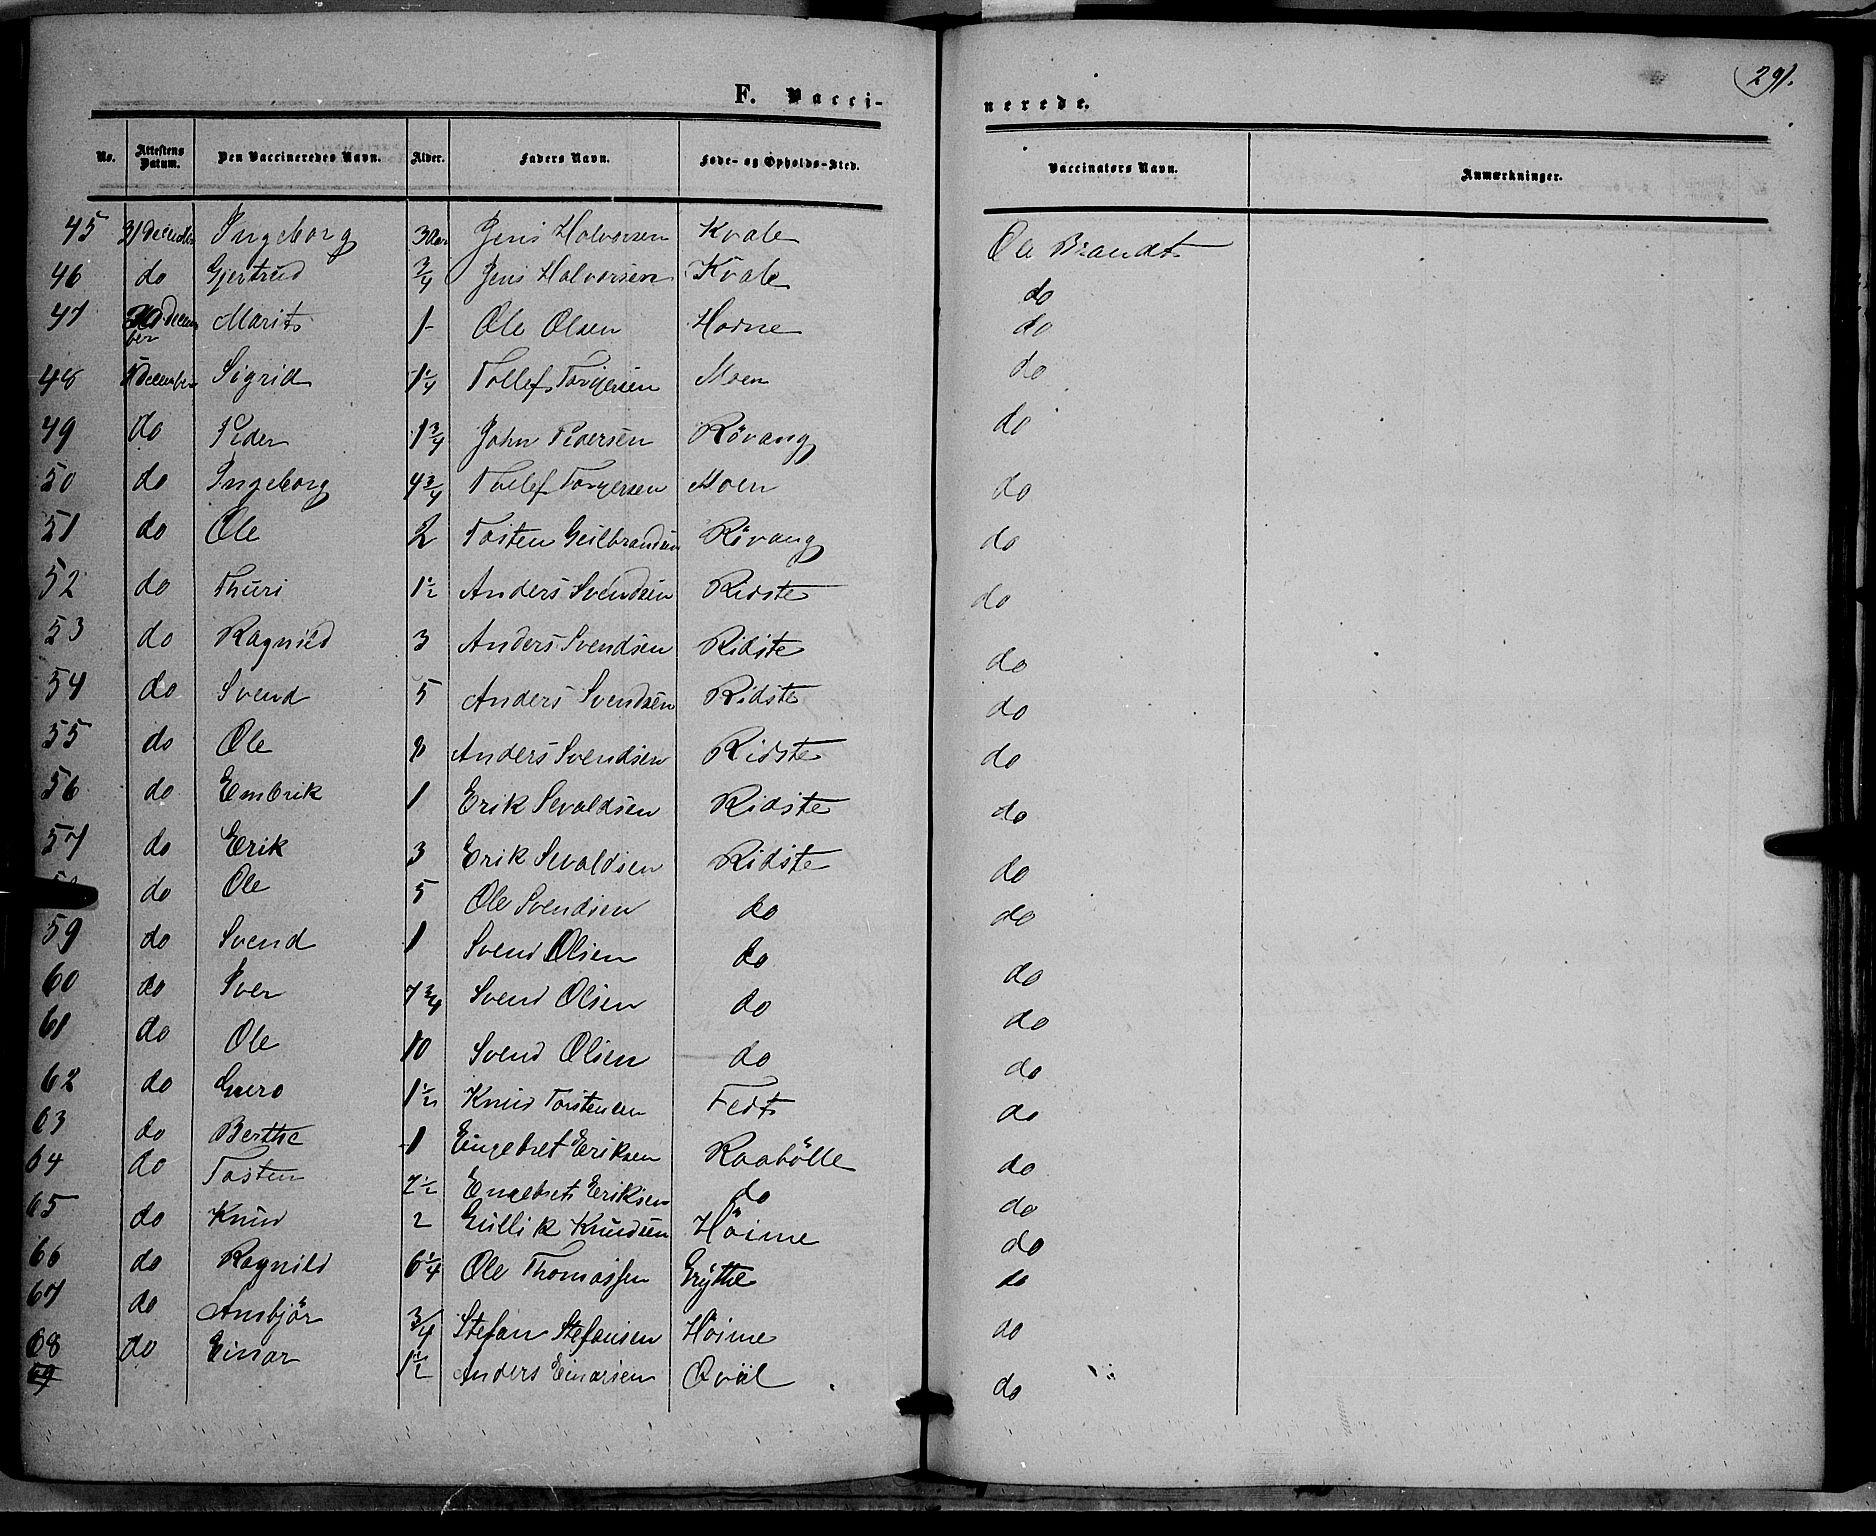 291.
F. Vacci-
nerede.
No. Attestens Datum. Den Vaccineredes Navn. Alder. Faders Navn. Føde- og Opholds-Sted. Vaccinators Navn. Anmærkninger.
45 31 December Ingeborg 3 Aar Jens Halvorsen Kvale Ole Brandt
46 do Gjertrud 3/4 Jens Halvorsen Kvale do
47 December Marit 1 Ole Olsen Horne do
48 December Sigrid 1 1/4 Tollef Torgersen Moen do
49 do Peder 1 3/4 John Pedersen Røvang do
50 do Ingeborg 4 3/4 Tollef Torgersen Moen do
51 do Ole 2 Tosten Gulbrandsen Røvang do
52 do Thuri 1 1/2 Anders Svendsen Ridste do
53 do Ragnild 3 Anders Svendsen Ridste do
54 do Svend 5 Anders Svendsen Ridste do
55 do Ole 8 Anders Svendsen Ridste do
56 do Embrik 1 Erik Sevaldsen Ridste do
57 do Erik 3 Erik Sevaldsen Ridste do
do Ole 5 Ole Svendsen do do
59 do Svend 1 Svend Olsen do do
60 do Iver 7 3/4 Svend Olsen do do
61 do Ole 10 Svend Olsen do do
62 do Guro 1 1/2 Knud Torstensen do
63 do Berthe 1 Engebret Eriksen Raabölle do
64 do Tosten 7 1/2 Engebret Eriksen do do
65 do Knud 2 Gullik Knudsen Höime do
66 do Ragnild 6 1/4 Ole Thomassen Grythe do
67 do Ansbjör 3/4 Stefan Stefansen Höime do
68 do Einar 1 1/2 Anders Einarsen Qväl do
69